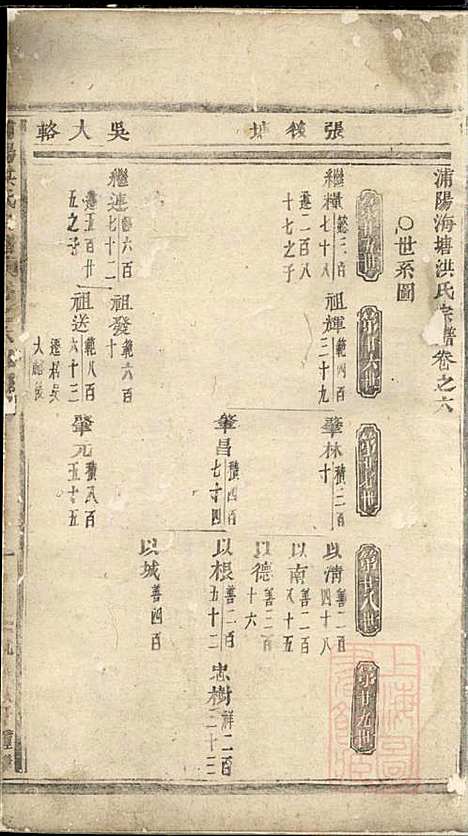 張後塘
吳大輅
浦陽海塘洪氏宗譜卷之六
〇世系圖
第十五世
第十六世
第十七世
第十八世
第十九世
繼糧 懿三百七十八 遂二百八十七之子
祖輝 範四百三十九
肇林 積三百十
以清 善二百四十八
以南 善二百八十五
以德 善三百十六
肇昌 積四百七十四
以根 善二百五十二
忠樹 祥二百二十三
以城 善四百
繼連 懿六百七十二 遂五百廿五之子
祖發 範六百十
祖送 範八百六十三 遷居吳大輅後
肇元 積八百五十五